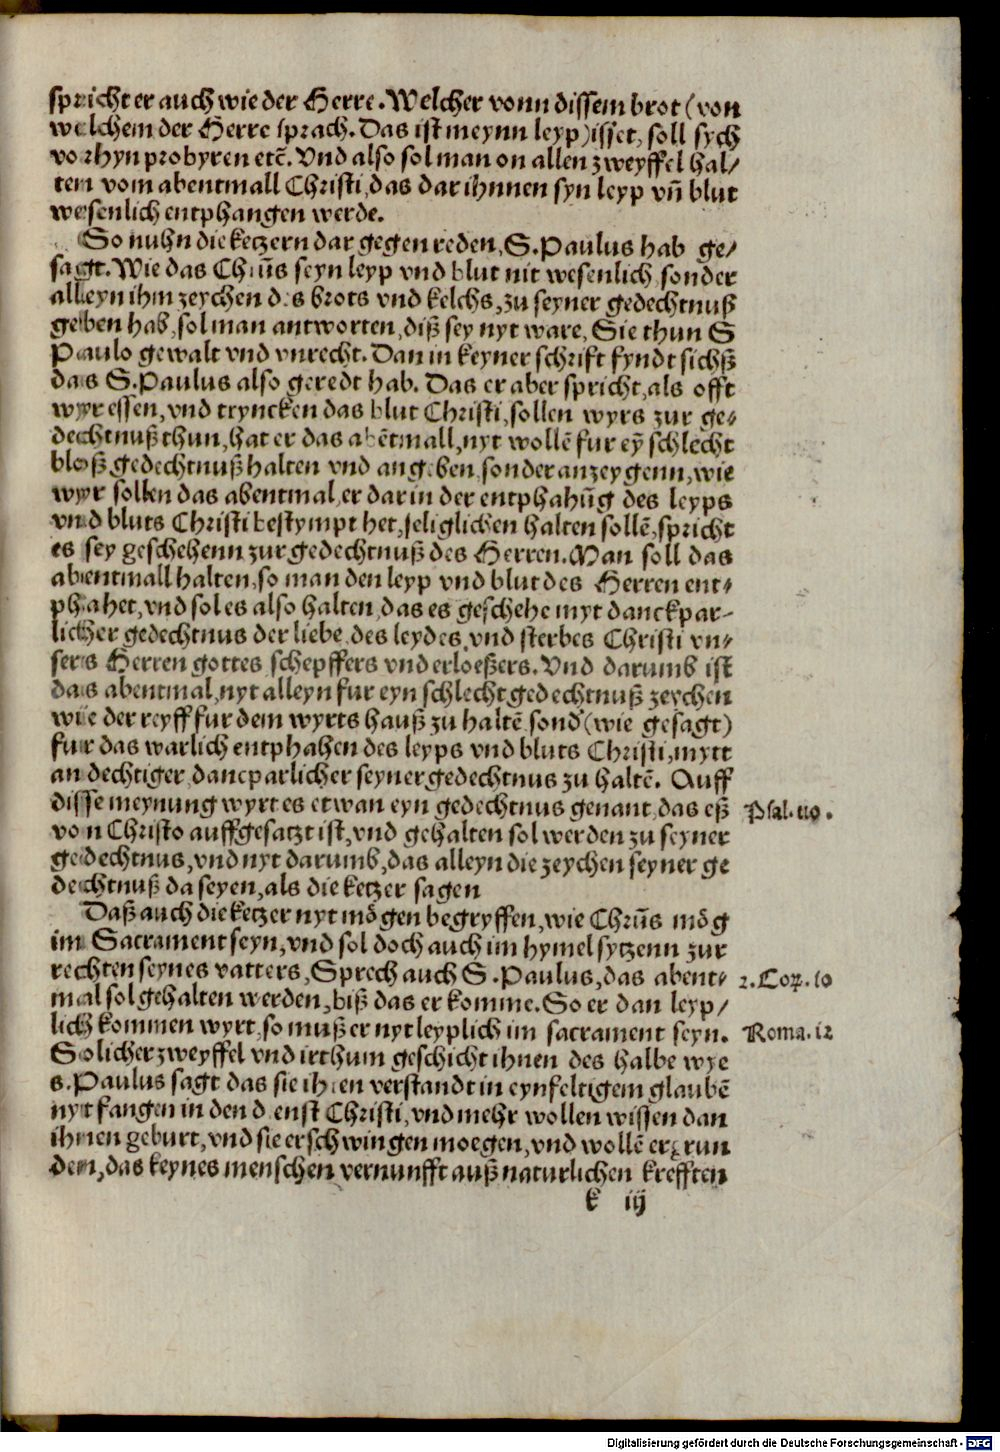 spricht er auch wie der Herre. Welcher vonn dissem brot (von
welchem der Herre sprach. Das ist meynn leyp) isset, soll sych
vorhyn probyren etc̄. Vnd also sol man on allen zweyffel hal/
ten vom abentmall Christi, das dar ihnnen syn leyp vn̄ blut
wesenlich entphangen werde.
So nuhn die ketzern dar gegen reden, S. Paulus hab ge/
sagt. Wie das Chrūs seyn leyp vnd blut nit wesenlich sonder
alleyn ihm zeychen des brots vnd kelchs, zu seyner gedechtnuß
geben hab, sol man antworten, diß sey nyt ware, Sie thun S
Paulo gewalt vnd vnrecht. Dan in keyner schrift fyndt sichß
das S. Paulus also geredt hab. Das er aber spricht, als offt
wyr essen, vnd tryncken das blut Christi, sollen wyrs zur ge/
dechtnuß thun, hat er das abētmall, nyt wollē fur eȳ schlecht
bloß gedechtnuß halten vnd angeben, sonder anzeygenn, wie
wyr sollen das abentmal, er dar in der entphahūg des leyps
vnd bluts Christi bestympt het, seliglichen halten sollē, spricht
es sey geschehenn zur gedechtnuß des Herren. Man soll das
abentmall halten, so man den leyp vnd blut des Herren ent/
phahet, vnd sol es also halten, das es geschehe myt danckpar-
licher gedechtnus der liebe, des leydes, vnd sterbes Christi vn/
sers Herren gottes schepffers vnd erloeßers. Vnd darumb ist
das abentmal, nyt alleyn fur eyn schlecht gedechtnuß zeychen
wie der reyff fur dem wyrts hauß zu haltē sond' (wie gesagt)
fur das warlich entphahen des leyps vnd bluts Christi, mytt
andechtiger, dancparlicher seyner gedechtnus zu haltē. Auff
disse meynung wyrt es etwan eyn gedechtnus genant, das eß
von Christo auffgesatzt ist, vnd gehalten sol werden zu seyner
gedechtnus, vnd nyt darumb, das alleyn die zeychen seyner ge
dechtnuß da seyen, als die ketzer sagen
Psal. 110.
Daß auch die ketzer nyt mögen begryffen, wie Chrūs mög
im Sacrament seyn, vnd sol doch auch im hymel sytzenn zur
rechten seynes vatters, Sprech auch S. Paulus, das abent/
mal sol gehalten werden, biß das er komme. So er dan leyp/
lich kommen wyrt, so muß er nyt leyplich im sacrament seyn.
Solicher zweyffel vnd irthum geschicht ihnen des halbe wye
s. Paulus sagt das sie ihren verstandt in eynfeltigem glaubē
nyt fangen in den denst Christi, vnd mehr wollen wissen dan
ihnen geburt, vnd sie erschwingen moegen, vnd wollē ergrun
den, das keynes menschen vernunfft auß naturlichen krefften
2. Cor. 10
Roma. 12
k iij
Digitalisierung gefördert durch die Deutsche Forschungsgemeinschaft - DFG